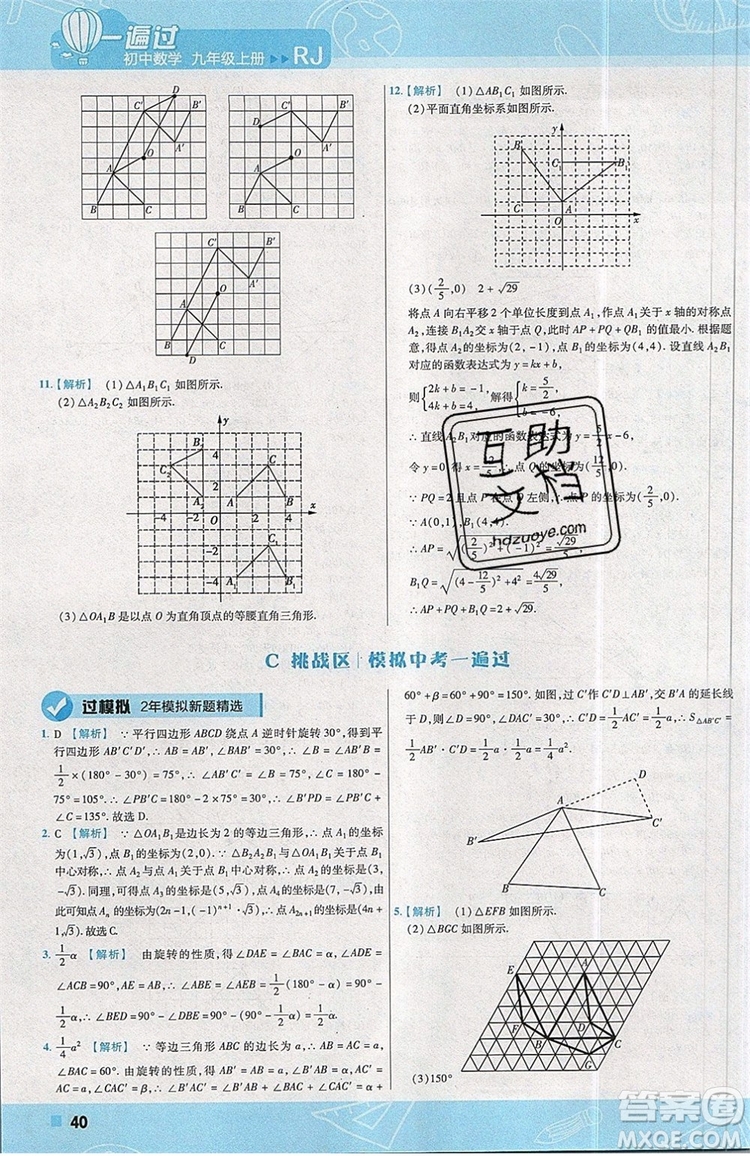 一遍过
初中数学 九年级上册 ▶▶ RJ
C' D B'
A'
O
A
B C
C' B'
D
A'
O
A
B C
C' B'
A'
O
A
B C
D
11.【解析】 (1) △A₁B₁C₁ 如图所示.
(2) △A₂B₂C₂ 如图所示.
y
B₂ 4
C₂ C
2
A₂ A B
-4 -2 O 2 4 x
-2 C₁
-4 A₁ B₁
(3) △OA₁B 是以点 O 为直角顶点的等腰直角三角形.
12.【解析】 (1) △AB₁C₁ 如图所示.
(2) 平面直角坐标系如图所示.
y
B
C₁ B₁
C A
O x
(3) (2/5,0) 2+√29
将点 A 向右平移 2 个单位长度到点 A₁,作点 A₁ 关于 x 轴的对称点
A₂,连接 B₁A₂ 交 x 轴于点 Q,此时 AP+PQ+QB₁ 的值最小. 根据题
意,得点 A₂ 的坐标为(2,-1),点 B₁ 的坐标为(4,4). 设直线 B₁A₂
对应的函数表达式为 y=kx+b,
则{2k+b=-1, 4k+b=4, 解得{k=5/2, b=-6,
∴ 直线 B₁A₂ 对应的函数表达式为 y=5/2x-6,
令 y=0,得 x=12/5,∴ 点 Q 的坐标为(12/5,0).
∵ PQ=2且点 P 在点 Q 左侧,∴ 点 P 的坐标为(2/5,0).
∵ A(0,1),B₁(4,4),
∴ AP=√((2/5)²+(-1)²)=√29/5,
B₁Q=√((4-12/5)²+4²)=4√29/5,
∴ AP+PQ+B₁Q=2+√29.
互助文档
hdzuoye.com
C 挑战区 模拟中考一遍过
过模拟 2年模拟新题精选
1. D 【解析】 ∵ 平行四边形 ABCD 绕点 A 逆时针旋转 30°,得到平
行四边形 AB'C'D',∴ AB=AB',∠BAB'=30°,∴ ∠B=∠AB'B=
1/2×(180°-30°)=75°,∠AB'C'=∠B=75°,∴ ∠PB'C=180°-
75°-75°=30°. ∵ ∠C=180°-75°=105°,∴ ∠B'PD=∠PB'C+
∠C=135°. 故选 D.
2. C 【解析】 ∵ △OA₁B₁ 是边长为 2 的等边三角形,∴ 点 A₁ 的坐标
为(1,√3),点 B₁ 的坐标为(2,0). ∵ △B₂A₂B₁ 与△OA₁B₁ 关于点 B₁
中心对称,∴ 点 A₂ 与点 A₁ 关于点 B₁ 中心对称,∴ 点 A₂ 的坐标是(3,
-√3). 同理,可得点 A₃ 的坐标是(5,√3),点 A₄ 的坐标是(7,-√3),由
此可知点 Aₙ 的坐标为(2n-1,(-1)ⁿ⁺¹·√3),∴ 点 A₂ₙ₊₁ 的坐标是(4n+
1,√3). 故选 C.
3. 1/2α 【解析】 由旋转的性质,得∠DAE=∠BAC=α,∴ ∠BAE=
∠DAE=α. ∵ AB=AE,∴ ∠ABE=∠AEB=1/2(180°-α)=90°-
1/2α,∴ ∠BED=90°-∠ABE=90°-(90°-1/2α)=1/2α.
4. 1/4a² 【解析】 ∵ 等边三角形 ABC 的边长为 a,∴ AB=AC=a,
∠BAC=60°,∴ AB'=AB=a,AC'=AC=a,∴ ∠B'AC'=∠BAC+α+
60°+β=60°+90°=150°. 如图,过点 C'作 C'D⊥AB',交 B'A 的延长线
于 D,则∠DAC'=30°,∴ C'D=1/2AC'=1/2AC=1/2a,∴ S△AB'C'=
1/2AB'·C'D=1/2a·1/2a=1/4a².
D
A
C'
B'
B C
5.【解析】 (1) △EFB 如图所示.
(2) △BGC 如图所示.
E A
F D
B C
G
(3)150°
40
答案圈
MXQE.COM